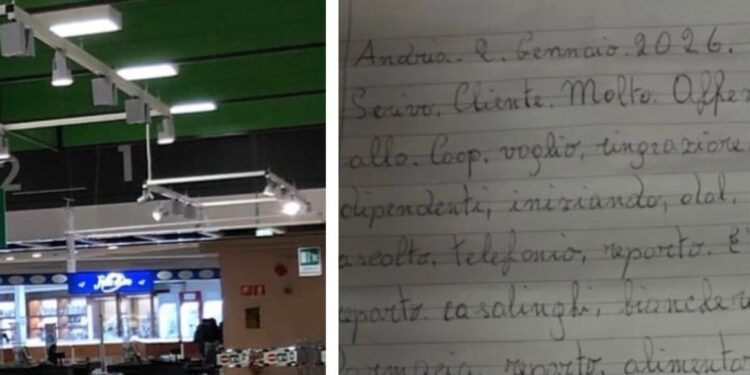 2
1
Andria. 2. Gennaio. 2026.
Scrivo, Cliente. Molto. Affez
alla. Coop. voglio, ringraziare
dipendenti, iniziando, dal.
ascolto, telefonio, reparto. E'
reparto. casalinghi, biancheri
reparto, alimenta